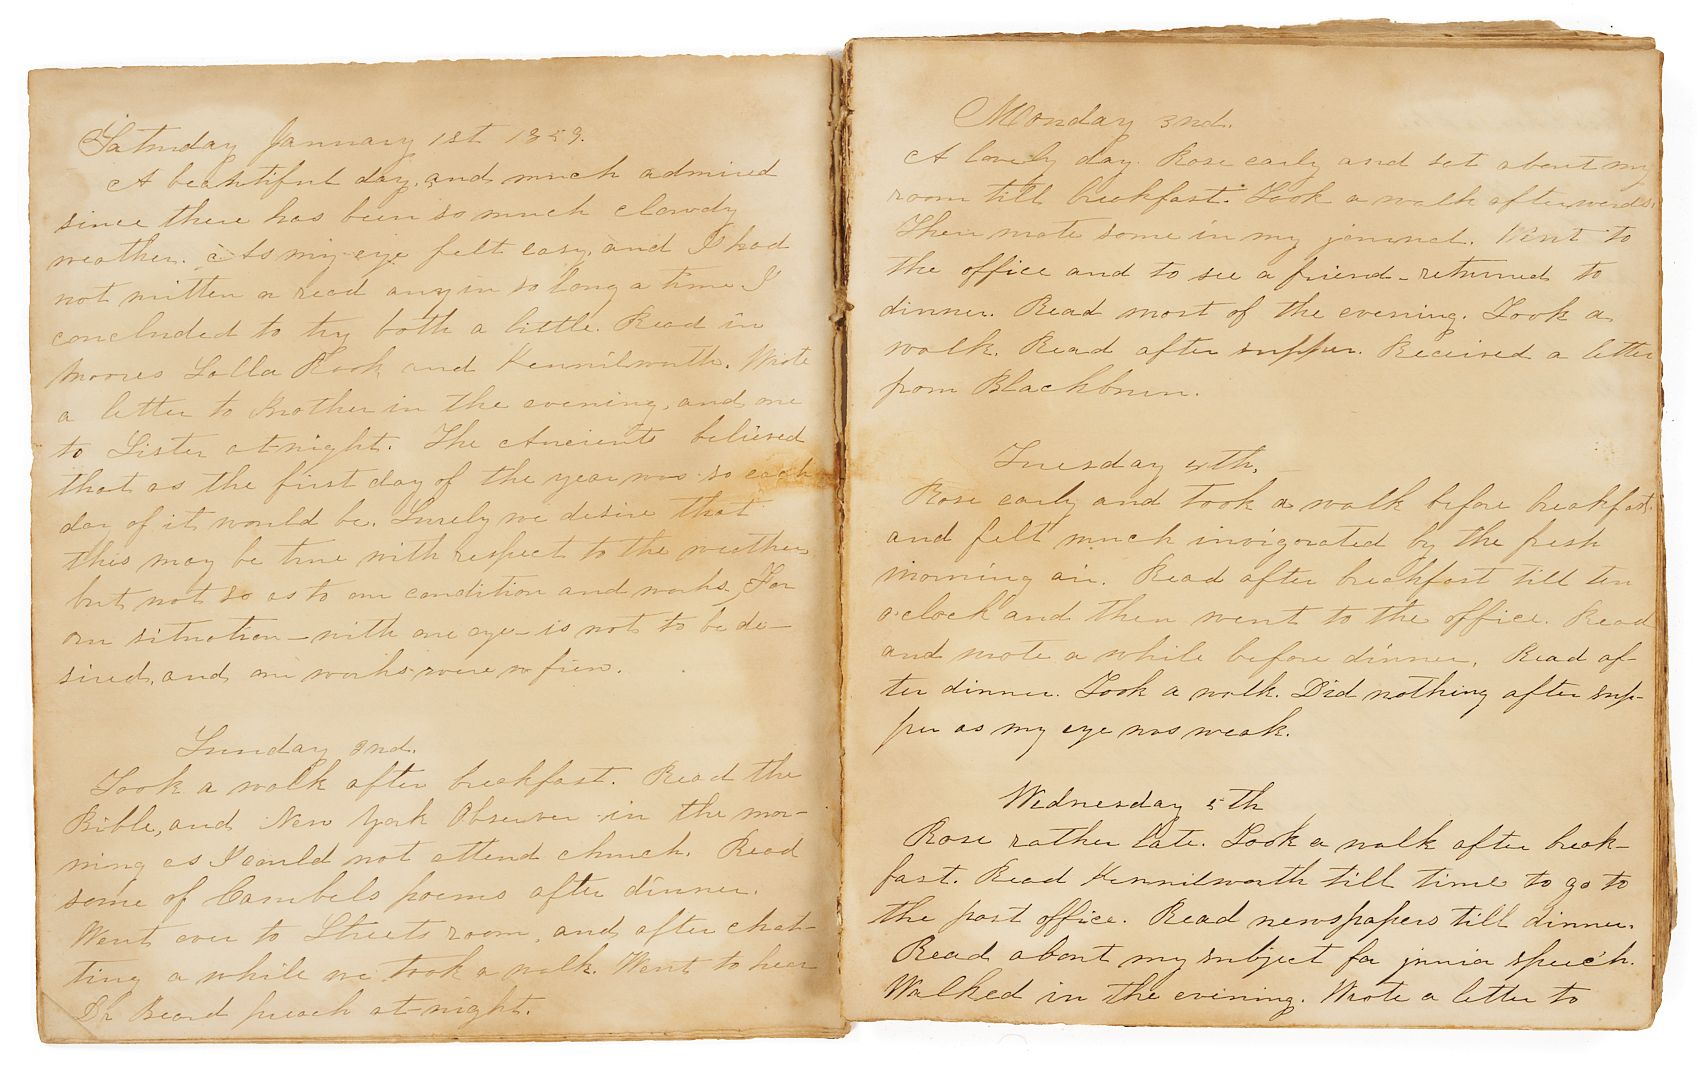 Saturday January 1st 1859.
A beautiful day, and much admired
since there has been so much clowdy
weather. As my eye felt easy, and I had
not written or read any in so long a time I
concluded to try both a little. Read in
Moores Lalla Rook and Kennilworth. Wrote
a letter to Brother in the evening, and one
to Sister at night. The Ancients believed
that as the first day of the year was so each
day of it would be. Surely we desire that
this may be true with respect to the weather
but not so as to our condition and works. For
our situation – with one eye – is not to be de-
sired, and our works were few.
Sunday 2nd.
Took a walk after breakfast. Read the
Bible, and New York Observer in the mor-
ning as I could not attend church. Read
some of Cambels poems after dinner.
Went over to Streets room, and after chat-
ting a while we took a walk. Went to hear
Dr Beard preach at night.
Monday 3nd.
A lovely day. Rose early and set about my
room till breakfast. Took a walk afterwards.
Then wrote some in my journal. Went to
the office and to see a friend – returned to
dinner. Read most of the evening. Took a
walk. Read after supper. Received a letter
from Blackburn.
Tuesday 4th.
Rose early and took a walk before breakfast,
and felt much invigorated by the fresh
morning air. Read after breakfast till ten
o'clock and then went to the office. Read
and wrote a while before dinner. Read af-
ter dinner. Took a walk. Did nothing after sup-
per as my eye was weak.
Wednesday 5th
Rose rather late. Took a walk after break-
fast. Read Kennilworth till time to go to
the post office. Read newspapers till dinner.
Read about my subject for junior speech.
Walked in the evening. Wrote a letter to